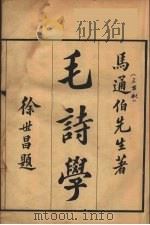 馬通伯先生著
毛詩學
徐世昌題